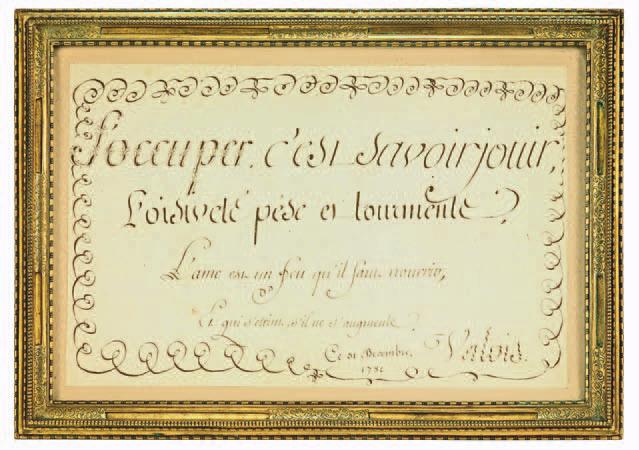 S'occuper, c'est savoir jouir,
L'oisiveté pèse et tourmente,
L'ame est un feu qu'il faut nourrir,
Et qui s'éteint s'il ne s'augmente,
Ce 31 Decembre, Valois.